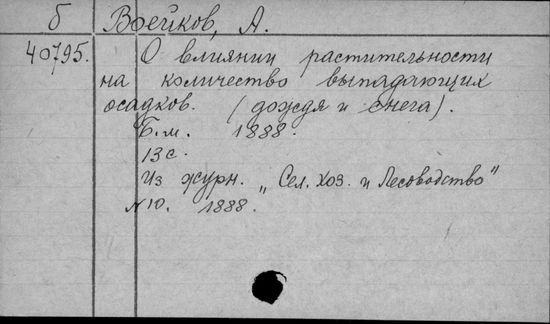 б Воейков, А.
40795. О влиянии растительности
на количество выпадающих
осадков. (дождя и снега).
Б.м. 1888.
13 с.
Из журн. „Сел. Хоз. и Лесоводство"
№ 10. 1888.